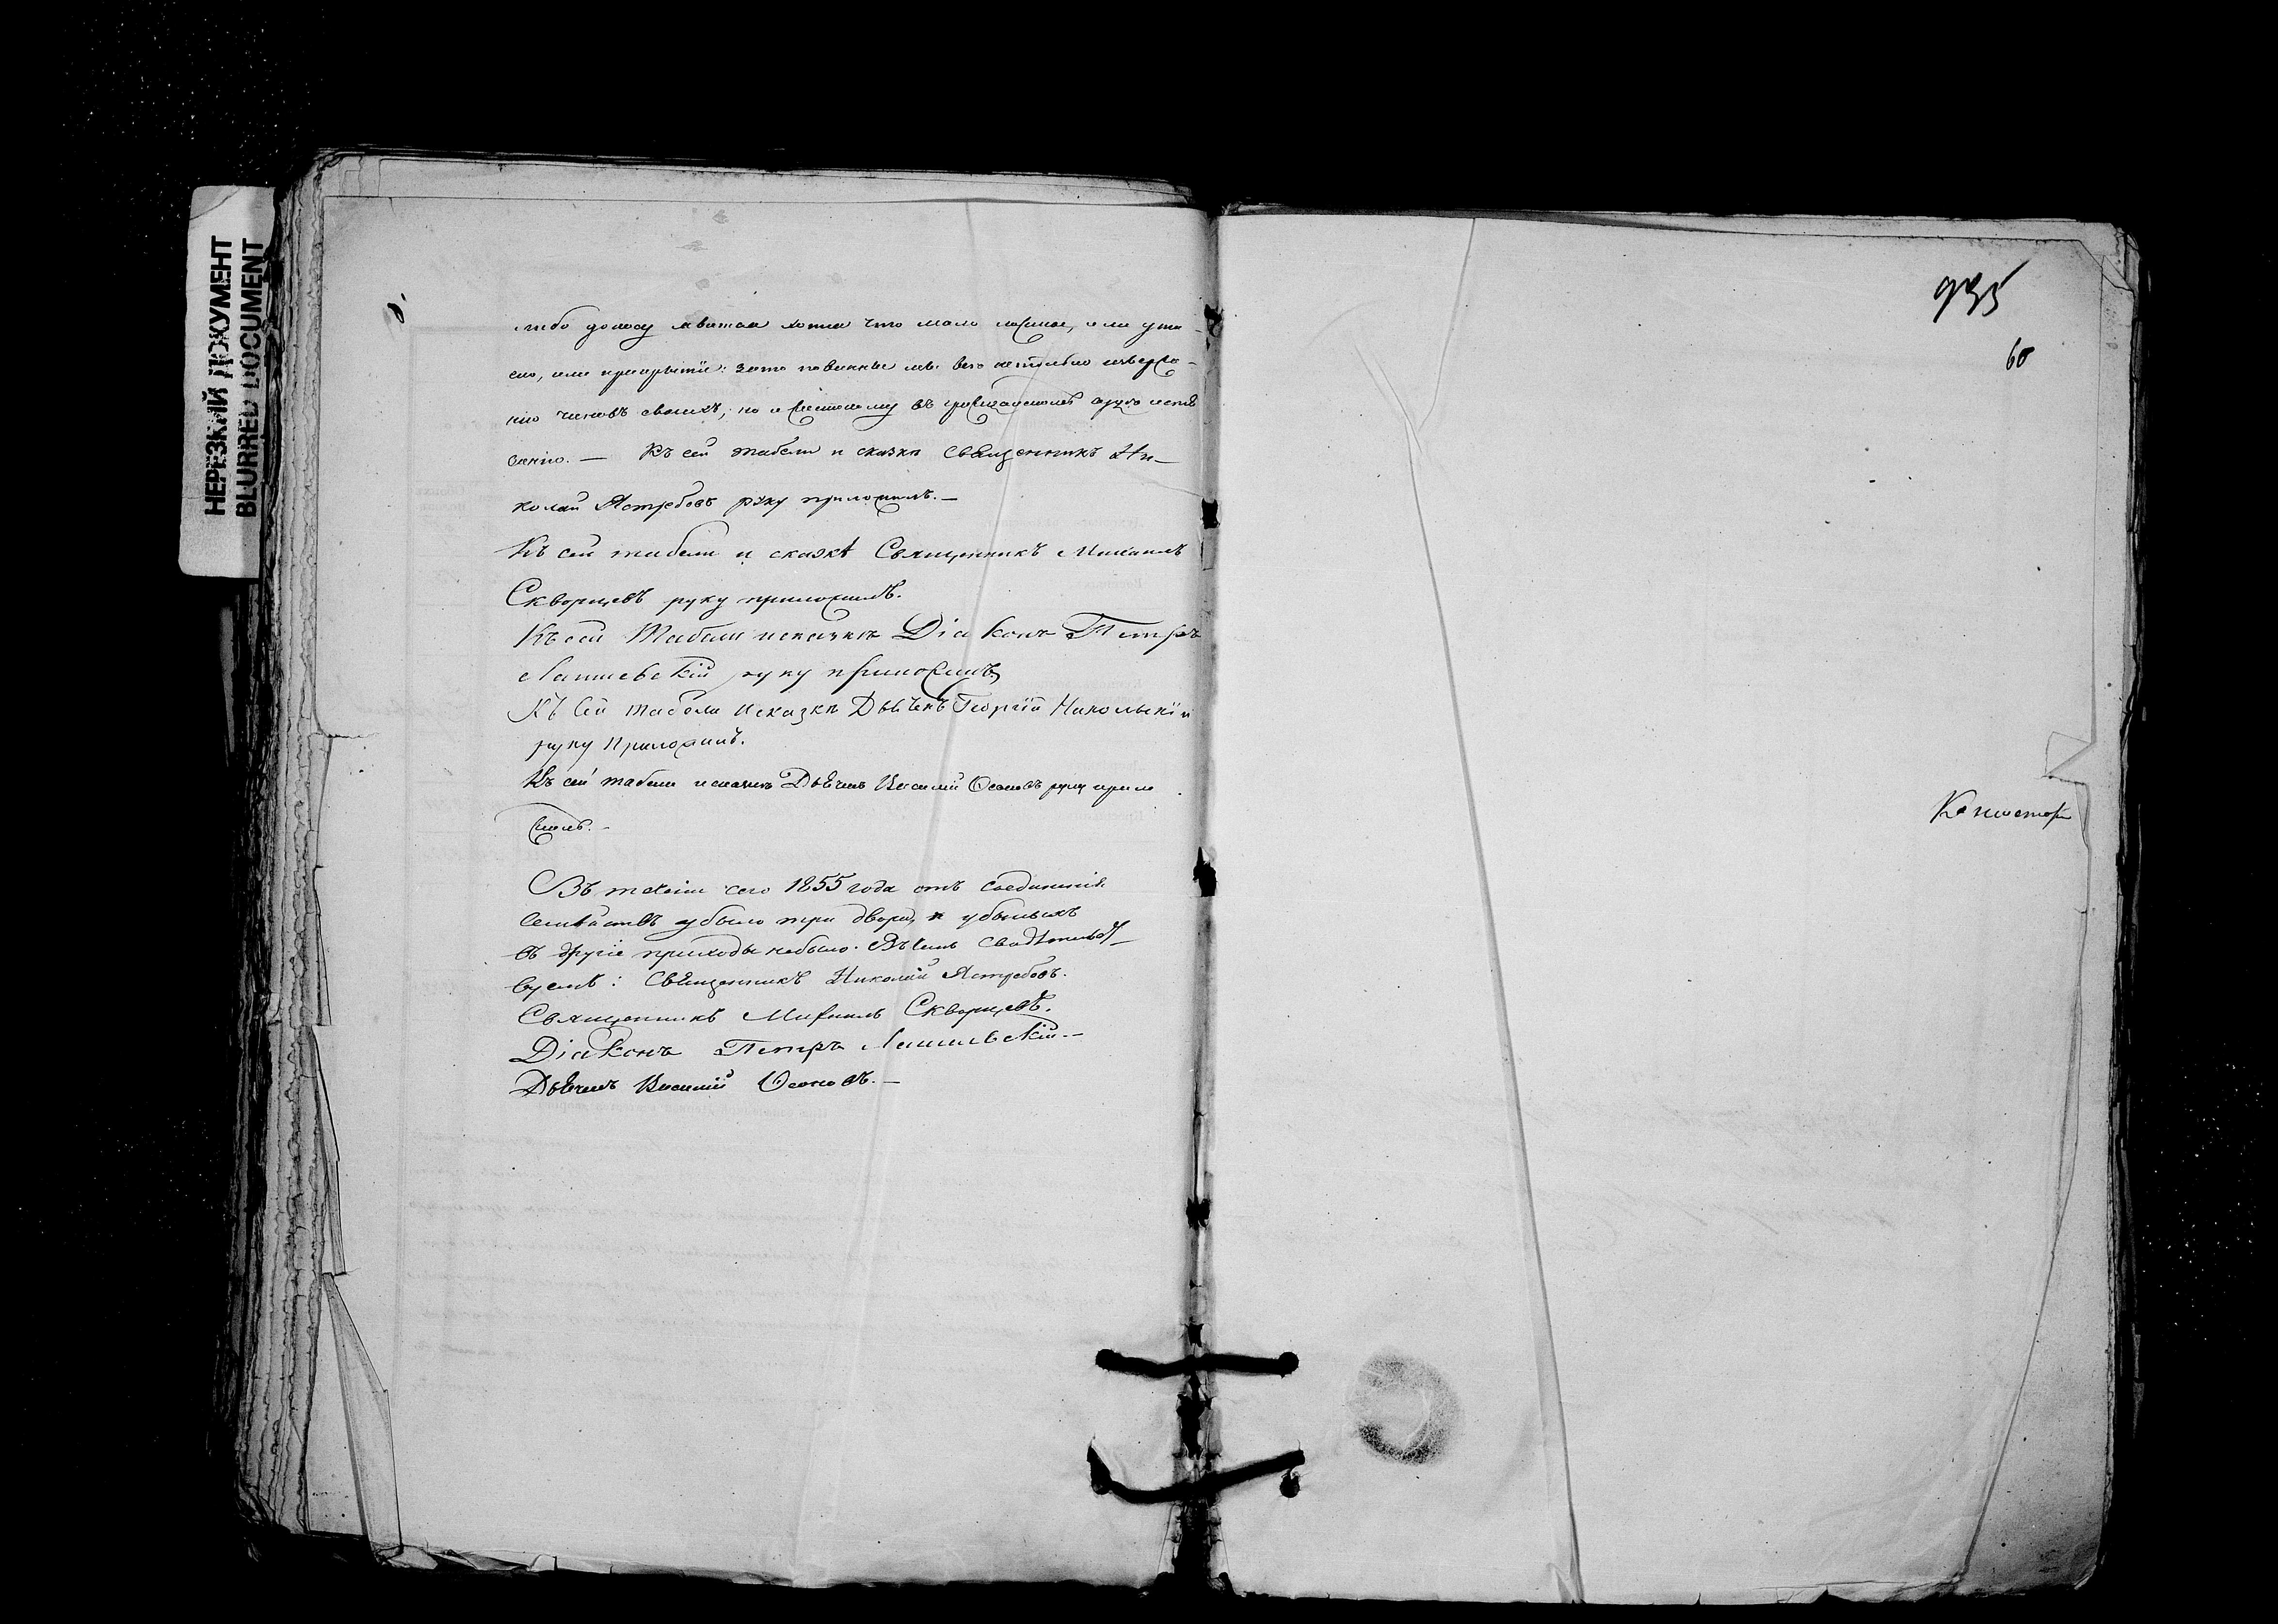 НЕРЕЗКИЙ ДОКУМЕНТ
BLURRED DOCUMENT
либо доносу явится хотя что мало ложное, или ута-
ено, или прикрытіе: зато повинны мы не только изверже-
нію чиновъ своихъ, но и жестокому въ гражданскомъ судѣ
занію. — Къ сей табели и сказкѣ Священникъ Ни-
колай Ястребовъ руку приложилъ. —
Къ сей табели и сказкѣ Священникъ Михаилъ
Скворцевъ руку приложилъ.
Къ сей Табели и сказкѣ Діаконъ Петръ
руку приложилъ
Къ сей табели и сказкѣ Дьячекъ Георгій Никольскій
руку приложилъ.
Къ сей табели и сказкѣ Дьячекъ Василій Осоковъ руку прило
жилъ. —
Въ теченіи сего 1855 года отъ соединенія
семействъ убыло три двора, а убылыхъ
въ другіе приходы небыло. Въ чемъ свидѣтельст-
вуемъ: Священникъ Николай Ястребовъ.
Священникъ Михаилъ Скворцевъ.
Діаконъ Петръ
Дьячекъ Василій Осоковъ. —
935
60
Консистор